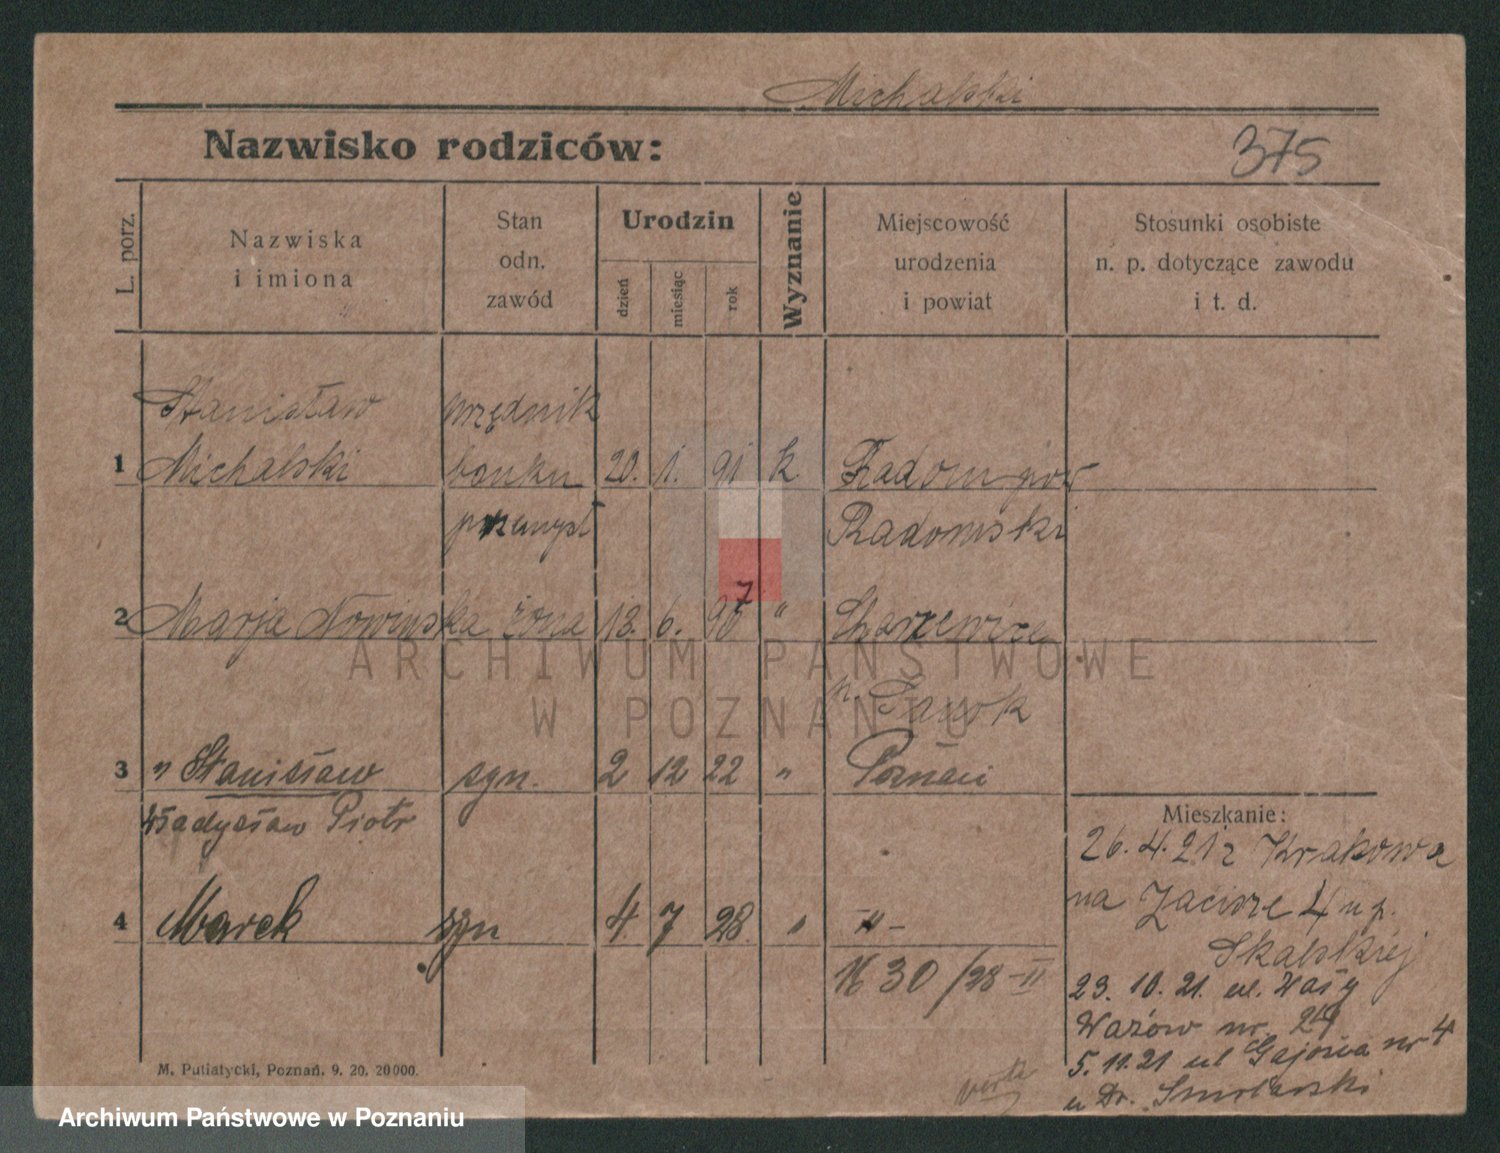 Michalski
Nazwisko rodziców:
375
L. porz.
Nazwiska
i imiona
Stan
odn.
zawód
Urodzin
dzień
miesiąc
rok
Wyznanie
Miejscowość
urodzenia
i powiat
Stosunki osobiste
n. p. dotyczące zawodu
i t. d.
Stanisław urzędnik
1 Michalski banku 20. 1. 91 k. Radom pow
przemysł Radomski
7
2 Marja Nowińska żona 13. 6. 90 "
p. Sanok
3 " Stanisław syn. 2 12 22 " Poznań
Władysław Piotr
4 Marek syn 4. 7 28 " - " -
30/28 - II
Mieszkanie:
26. 4. 21 z Krakowa
na Zacisze 4 u p.
Skalskiej
23. 10. 21. ul. Wały
Wazów nr. 24
5. 11. 21 ul Gajowa nr 4
u Dr. Smolarski
verte
M. Putiatycki, Poznań. 9. 20. 20000.
ARCHIWUM PAŃSTWOWE
W POZNANIU
Archiwum Państwowe w Poznaniu